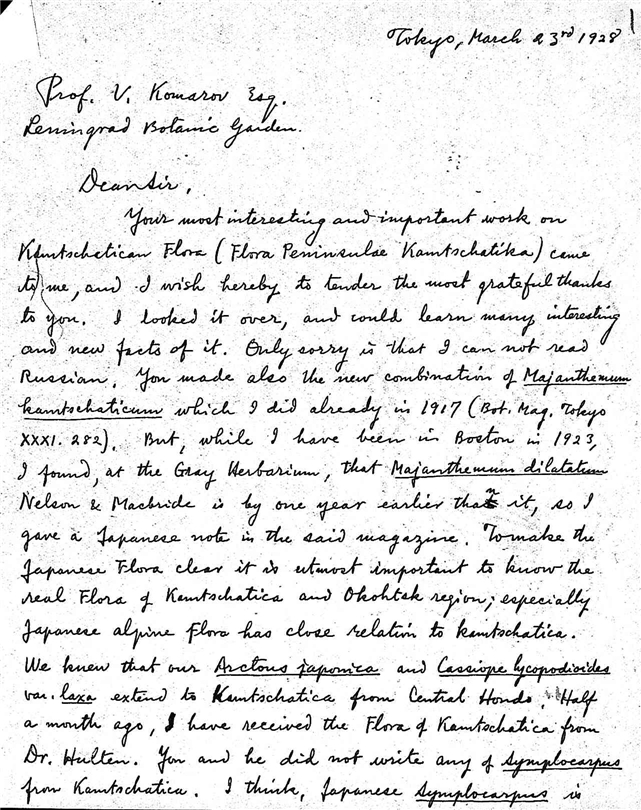 1
Tokyo, March 23rd 1928
Prof. V. Komarov Esq.
Leningrad Botanic Garden.
Dear Sir,
Your most interesting and important work on
Kamtschatican Flora (Flora Peninsulae Kamtschatika) came
to me, and I wish hereby to tender the most grateful thanks
to you. I looked it over, and could learn many interesting
and new facts of it. Only sorry is that I can not read
Russian. You made also the new combination of Majanthemum
kamtschaticum which I did already in 1917 (Bot. Mag. Tokyo
XXXI. 282). But, while I have been in Boston in 1923,
I found, at the Gray Herbarium, that Majanthemum dilatatum
Nelson & Macbride is by one year earlier than it, so I
gave a Japanese note in the said magazine. To make the
Japanese Flora clear it is utmost important to know the
real Flora of Kamtschatica and Okohtsk region; especially
Japanese alpine Flora has close relation to Kamtschatica.
We knew that our Arctous japonica and Cassiope lycopodioides
var. laxa extend to Kamtschatica from Central Hondo. Half
a month ago, I have received the Flora of Kamtschatica from
Dr. Hulten. You and he did not write any of Symplocarpus
from Kamtschatica. I think, Japanese Symplocarpus is